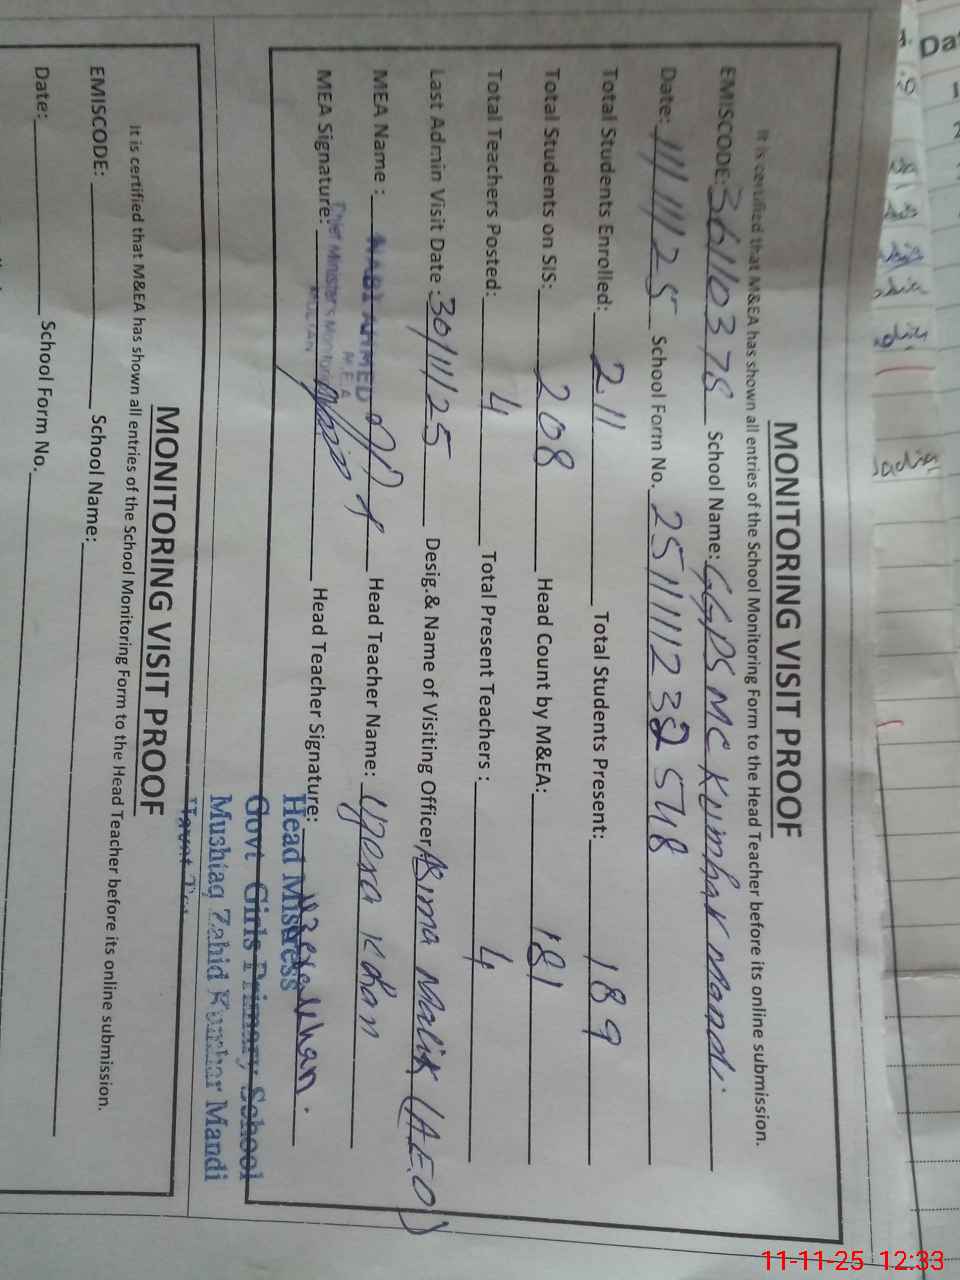 MONITORING VISIT PROOF
It is certified that M&EA has shown all entries of the School Monitoring Form to the Head Teacher before its online submission.
EMISCODE: 36110378 School Name: GGPS MC Kumhar Mandi
Date: 11/11/25 School Form No. 25111112
Total Students Enrolled: 211 Total Students Present: 189
Total Students on SIS: 208 Head Count by M&EA: 181
Total Teachers Posted: 4 Total Present Teachers : 4
Last Admin Visit Date : 30/11/25 Desig.& Name of Visiting Officer: Malik (AEO)
MEA Name : AHMED Head Teacher Name: Uzera Khan
M.E.A
MEA Signature: Head Teacher Signature: Uzera Khan.
Chief Minister's Monitoring
MULTAN
Head Mistress
Govt Girls Primary School
Mushtaq Zahid Kumhar Mandi
MONITORING VISIT PROOF
It is certified that M&EA has shown all entries of the School Monitoring Form to the Head Teacher before its online submission.
EMISCODE: School Name:
Date: School Form No.
11-11-25 12:33